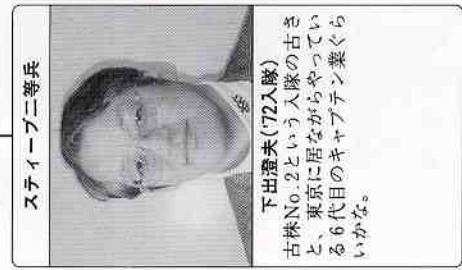 スティーブ二等兵
下出澄夫('72入隊)
古株No.2という入隊の古さ
と、東京に居ながらやってい
る6代目のキャプテン業ぐら
いかな。